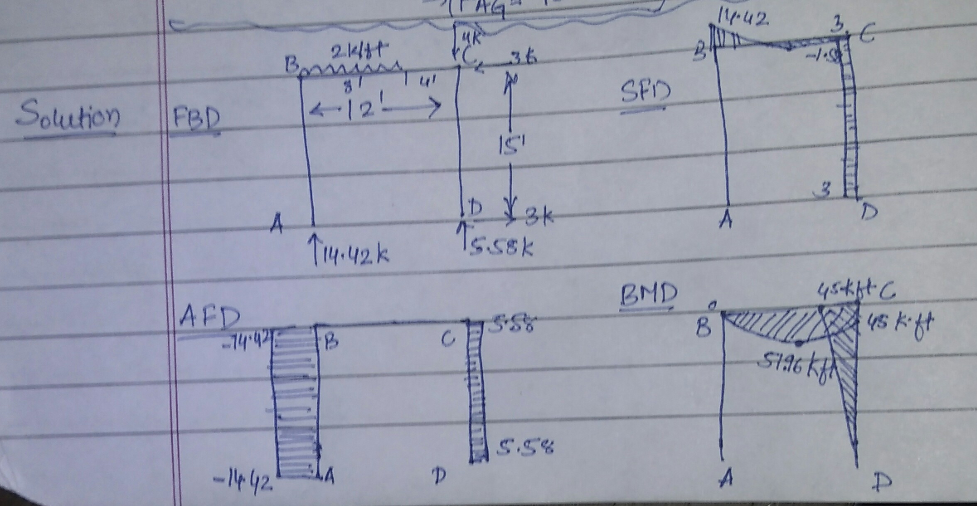 4k
2k/ft
B
C
3k
8'
4'
12'
15'
Solution
FBD
A
D
3k
14.42k
5.58k
SFD
14.42
B
3
C
3
A
D
AFD
-14.42
B
C
5.58
-14.42
A
D
5.58
BMD
B
45kft
C
45 k.ft
A
D